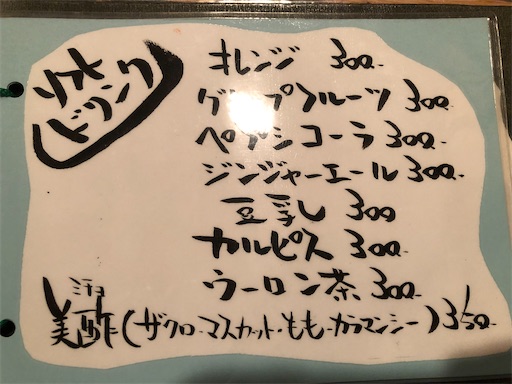 ソフト
ドリンク
オレンジ 300-
グレープフルーツ 300-
ペプシコーラ 300-
ジンジャーエール 300-
豆乳 300
カルピス 300-
ウーロン茶 300-
ミチョ
美酢(ザクロ・マスカット・もも・カラマンシー) 350-